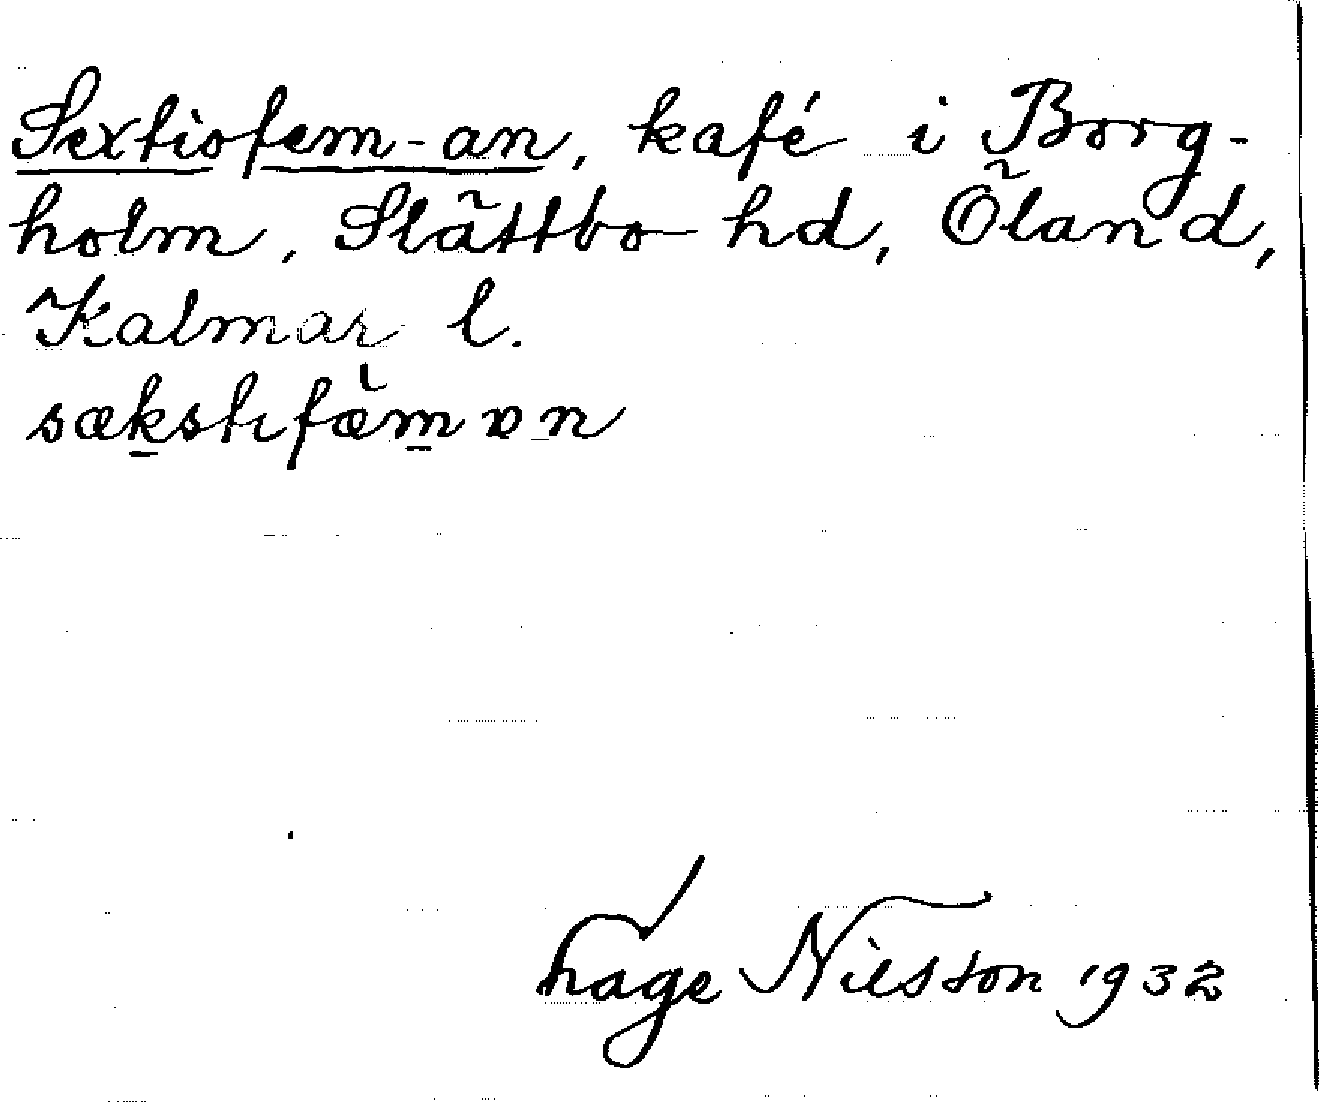 Sextiofem-an, kafé i Borg-
holm, Slättbo hd, Öland,
Kalmar l.
sækstɩfæ̀mɒn
Hage Nilsson 1932